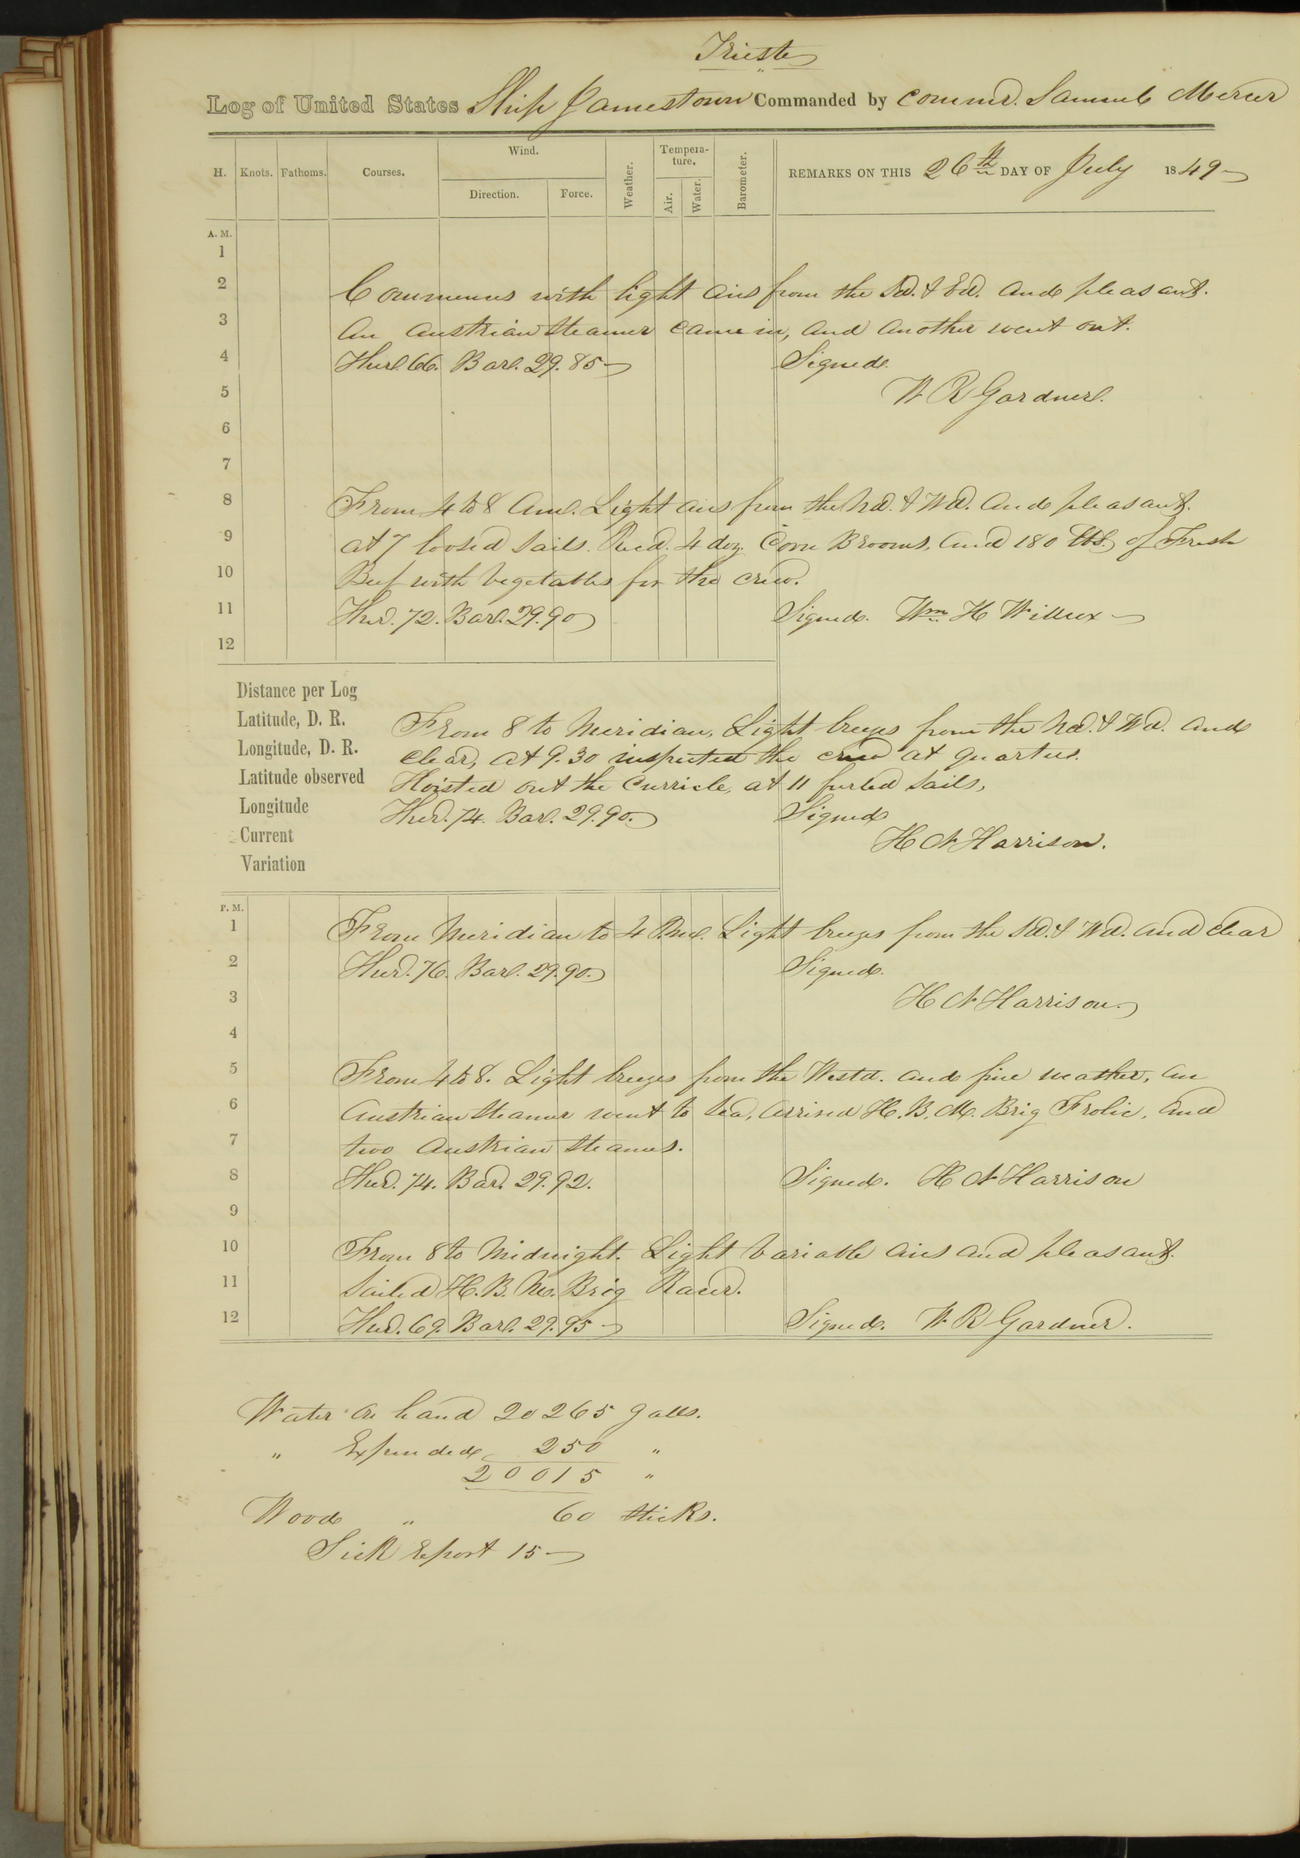 Trieste
Log of United States Ship Jamestown Commanded by Commdr. Samuel Mercer
H. Knots. Fathoms. Courses. Wind. Direction. Force. Weather. Tempera-ture. Air. Water. Barometer. REMARKS ON THIS 26th DAY OF July 1849
A. M.
1
2 Commences with light airs from the Sd. & Ed. and pleasant.
3 An Austrian Steamer came in, and another went out.
4 Ther. 66. Bar. 29.85 Signed
5 W R Gardner.
6
7
8 From 4 to 8 Am. Light airs from the Nd. & Wd. and pleasant.
9 At 7 loosed Sails. Recd. 4 doz. Corn Brooms, and 180 lbs. of Fresh
10 Beef with Vegetables for the crew.
11 Ther. 72. Bar. 29.90 Signed. Wm H Willcox
12
Distance per Log
Latitude, D. R. From 8 to Meridian, Light breezes from the Nd. & Wd. and
Longitude, D. R. Clear, At 9.30 inspected the crew at quarters.
Latitude observed Hoisted out the Curricle, at 11 furled Sails,
Longitude Ther. 74. Bar. 29.90. Signed
Current H N Harrison.
Variation
P. M.
1 From Meridian to 4 P.M. Light breezes from the Sd. & Wd. and clear
2 Ther. 76. Bar. 29.90. Signed.
3 H N Harrison.
4
5 From 4 to 8. Light breezes from the Westd. and fine weather, an
6 Austrian Steamer went to Sea, arrived H. B. M. Brig Frolic, and
7 two Austrian Steamers.
8 Ther. 74. Bar. 29.92. Signed. H N Harrison
9
10 From 8 to Midnight. Light Variable airs and pleasant.
11 Sailed H. B. Ms. Brig Racer.
12 Ther. 69. Bar. 29.95 Signed. W R Gardner.
Water on hand 20265 galls.
" Expended 250 "
20015 "
Wood " 60 sticks.
Sick Report 15